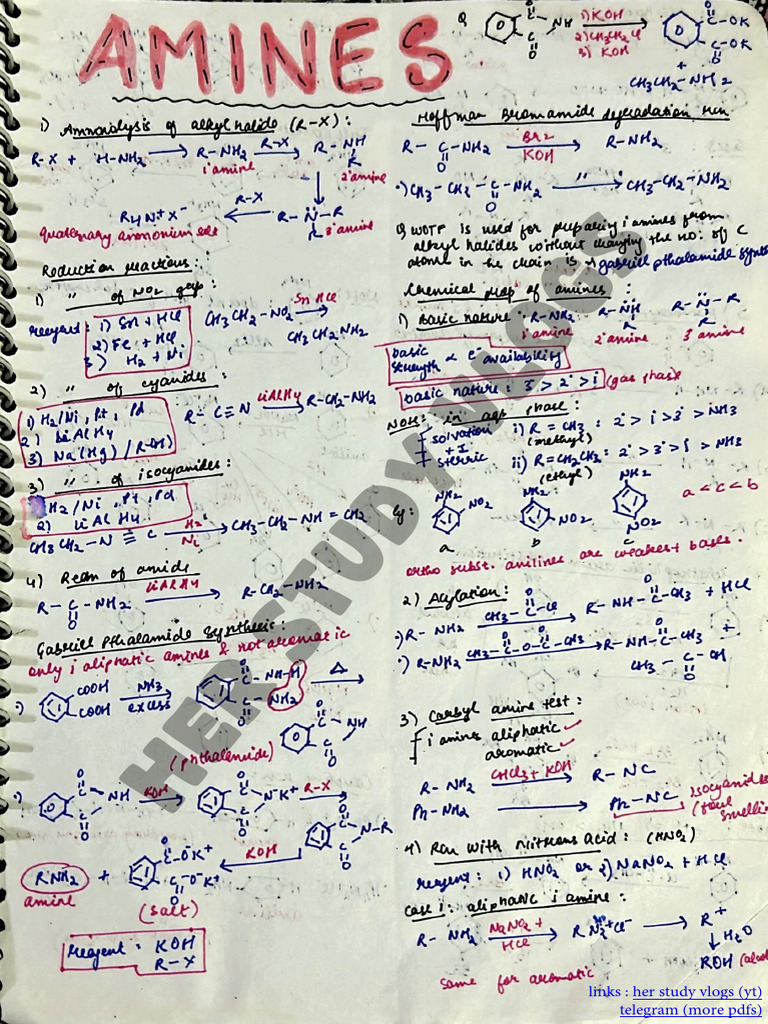 AMINES
1) Ammonialysis of alkyl halide (R-X) :
R-X + H-NH2 → R-NH2 R-X → R-NH
R
1° amine 2° amine
R4N+X- ← R-X R-N-R
R 3° amine
quaternary ammonium salt
Reduction reactions :
1) " of NO2 grp :
reagent : 1) Sn + HCl
2) Fe + HCl
3) H2 + Ni
CH3CH2-NO2 Sn HCl →
CH3CH2NH2
2) " of cyanides :
1) H2/Ni, Pt, Pd
2) LiAlH4
3) Na(Hg) /
R-C≡N LiAlH4 → R-CH2-NH2
3) " of isocyanides :
H2/Ni, Pt, Pd
2) LiAlH4
CH3CH2-N≡C H2 Ni → CH3-CH2-NH-CH2
4) Rean of amide
R-C-NH2 LiAlH4 → R-CH2-NH2
O
Gabriel Pthalamide Synthesis :
only 1° aliphatic amines & not aromatic
COOH
COOH
NH3
excess
O
C-NH-H
C-NH2
O
Δ
(phthalemide)
O
C
NH
C
O
O
C
NH
C
O
KOH
O
C
N-K+
C
O
R-X
O
C
N-R
C
O
KOH
RNH2 +
amine
O
C-O-K+
C-O-K+
O
(salt)
reagent : KOH
R-X
Q
O
C
NH
C
O
1) KOH
2) CH3CH2Cl
3) KOH
O
C-OK
C-OK
O
+
CH3CH2-NH2
Hoffman Bromamide degradation rxn
R-C-NH2 Br2 KOH → R-NH2
O
CH3-CH2-C-NH2 " → CH3-CH2-NH2
O
Q WOTF is used for preparing 1° amines from
alkyl halides without changing the no. of C
atoms in the chain is → gabriel pthalamide synth
Chemical prop of amines :
1) Basic nature : R-NH2 R-NH R-N-R
R R
1° amine 2° amine 3° amine
basic
strength ∝ e- availability
basic nature : 3° > 2° > 1° (gas phase
NOH: in aqp phase :
solvation
+ I
sterric
i) R = CH3 : 2° > 1° > 3° > NH3
(methyl)
ii) R = CH2CH3 : 2° > 3° > 1° > NH3
(ethyl)
Eg :
NH2
NO2
a
NH2
NO2
b
NH2
NO2
c
a < c < b
ortho subst. anilines are weakest bases.
2) Acylation :
R-NH2 CH3-C-Cl → R-NH-C-CH3 + HCl
O O
R-NH2 CH3-C-O-C-CH3 → R-NH-C-CH3 +
O O O
CH3-C-OH
O
3) Carbyl amine test :
1° amines aliphatic ✓
aromatic ✓
R-NH2 CHCl3 + KOH → R-NC
Ph-NH2 → Ph-NC isocyanides
(foul
smellin
4) Ran with Nitrous Acid : (HNO2)
reagent : 1) HNO2 or 2) NaNO2 + HCl
Case 1 : aliphatic 1° amine :
R-NH2 NaNO2 + HCl → R N2+Cl- → R+
↓ H2O
ROH (alcoh
same for aromatic
HER STUDY VLOGS
links : her study vlogs (yt)
telegram (more pdfs)